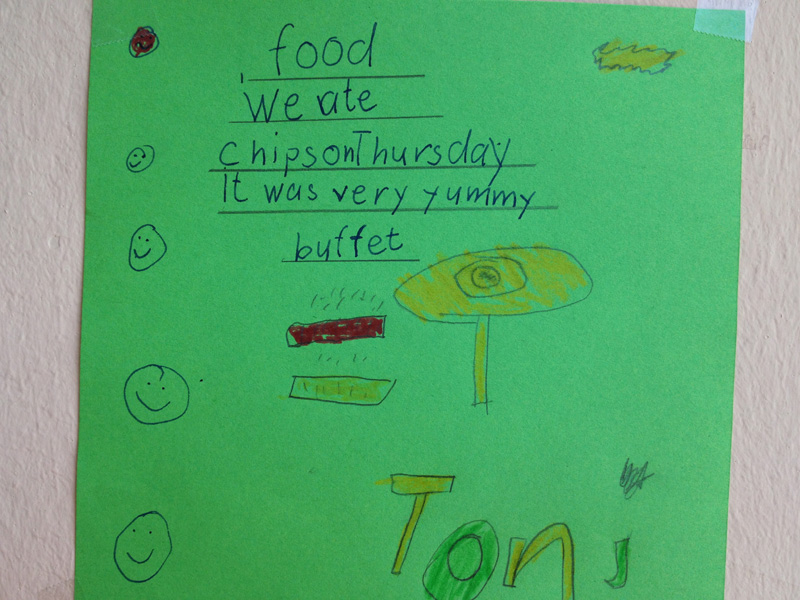 food
We ate
chipsonThursday
It was very yummy
buffet
Toni